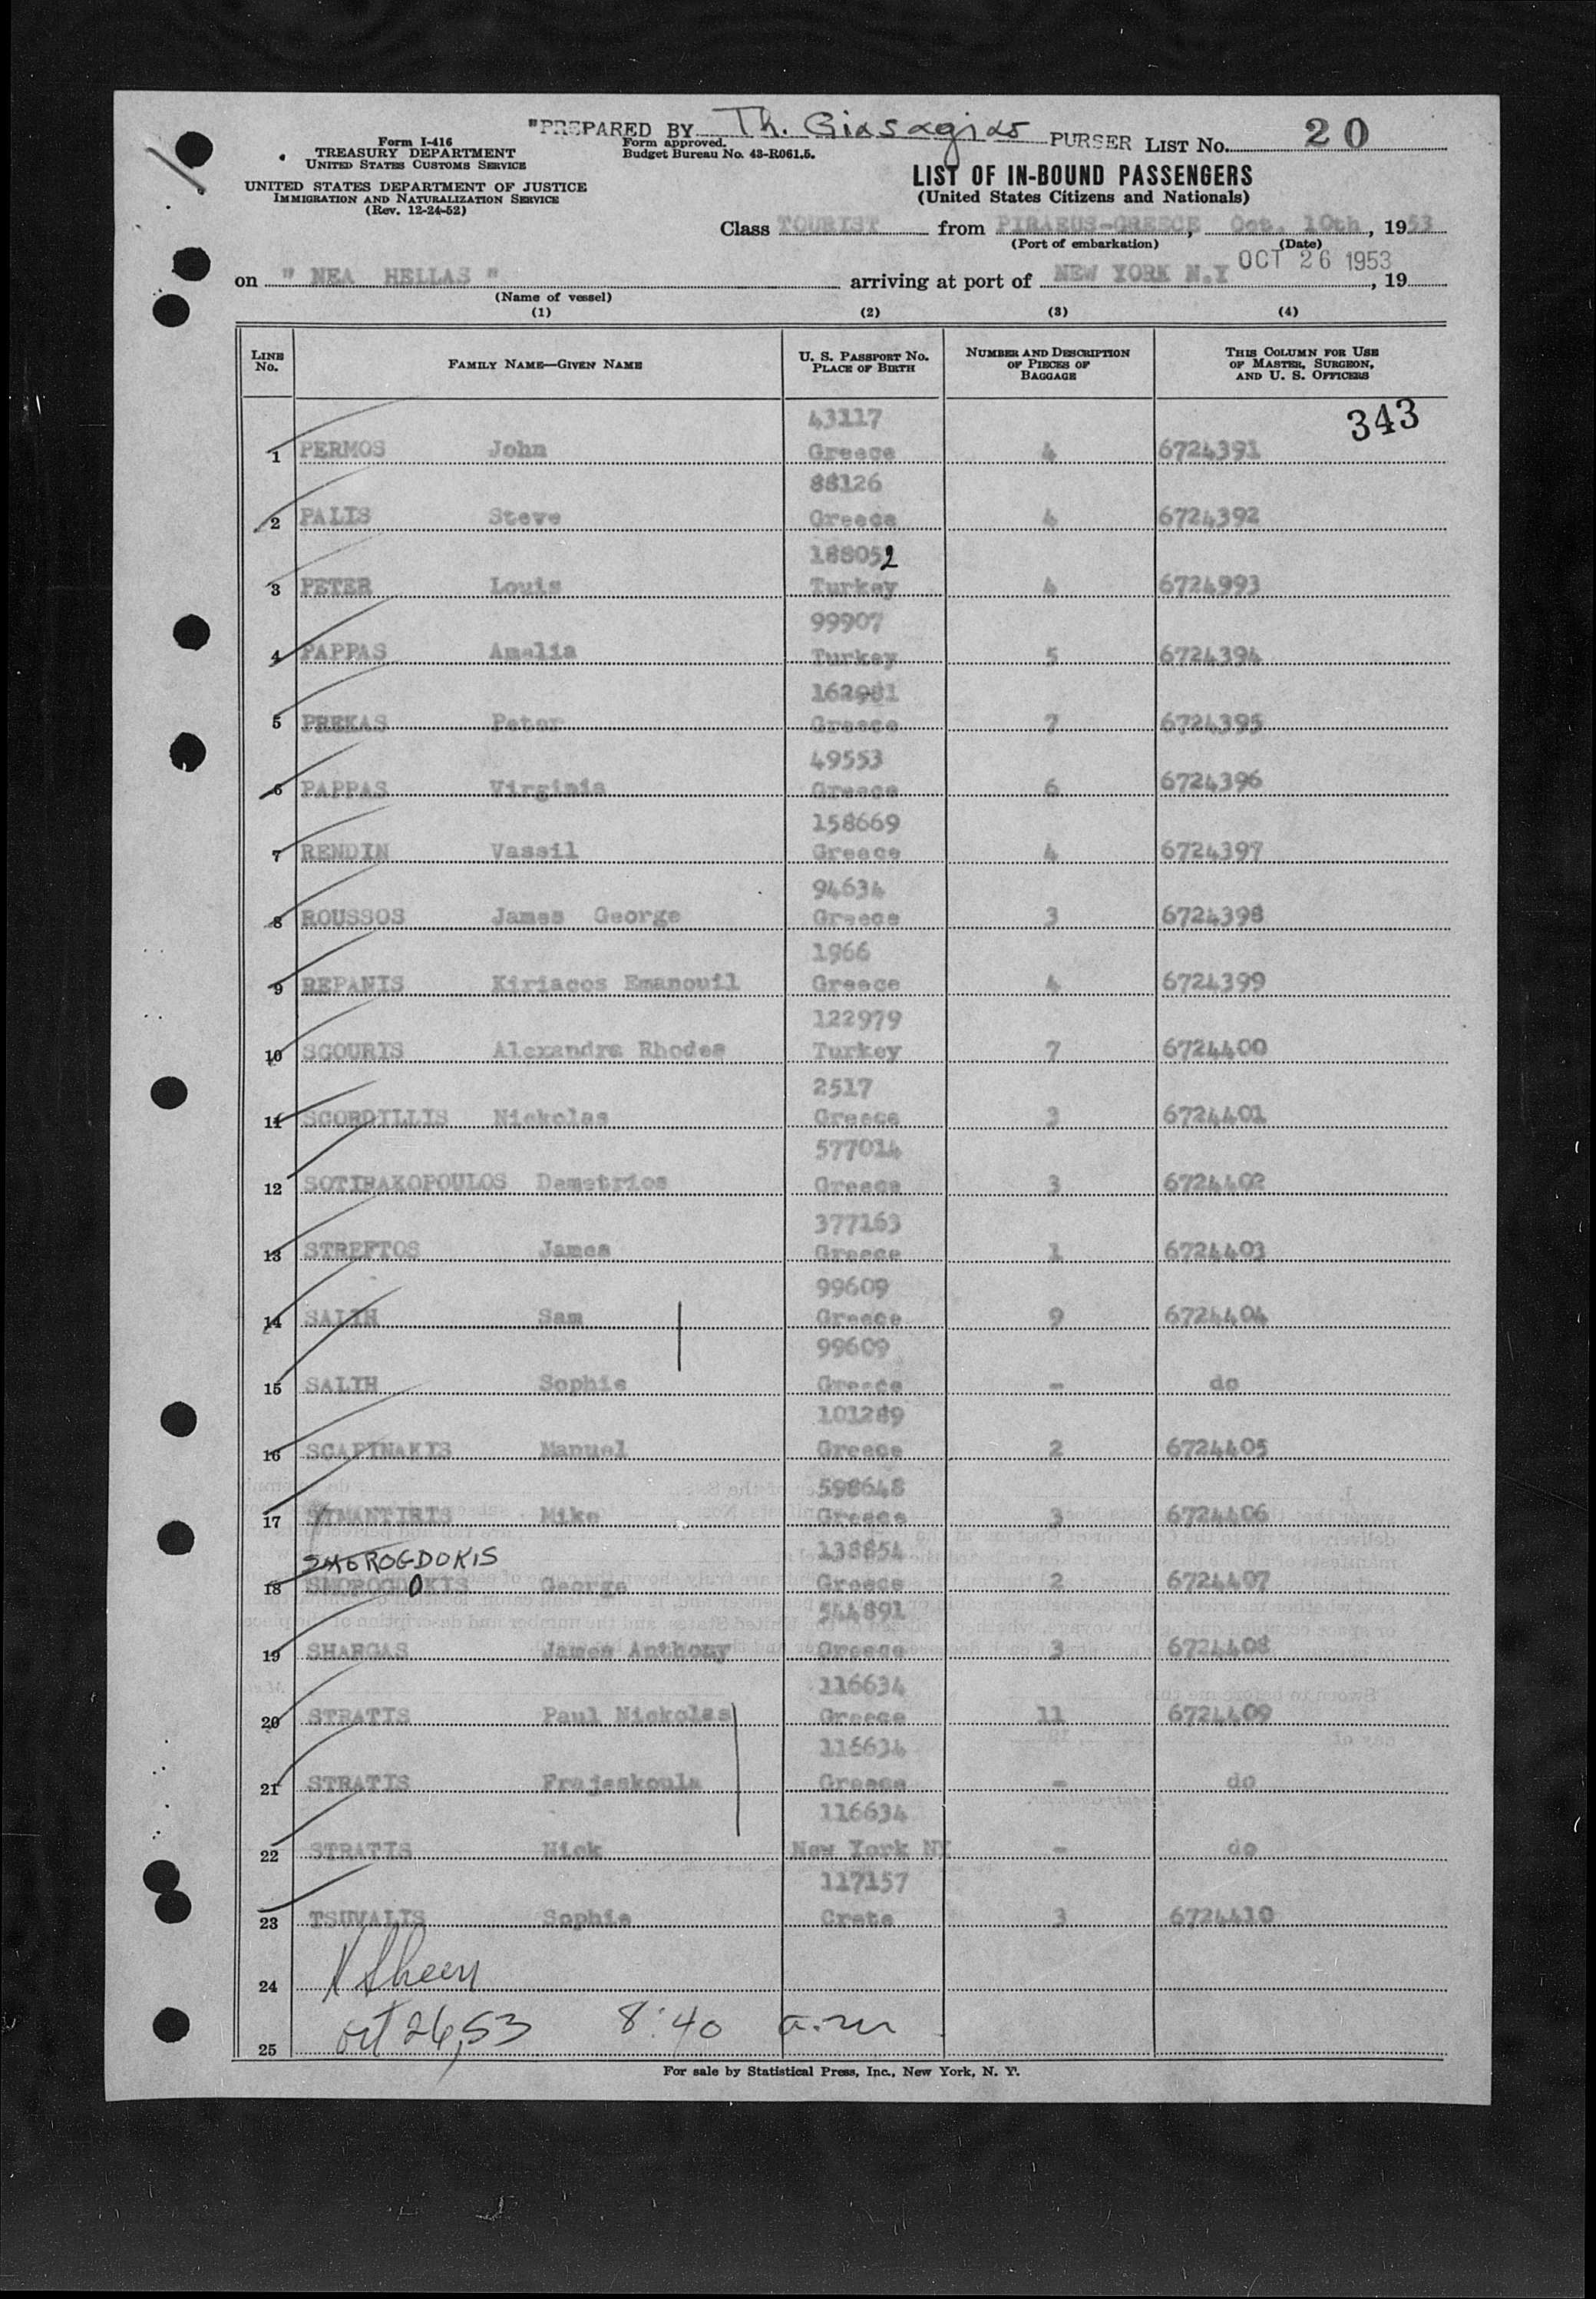 "PREPARED BY Th. Giasagias PURSER LIST No. 20
Form I-416
TREASURY DEPARTMENT
UNITED STATES CUSTOMS SERVICE
Form approved.
Budget Bureau No. 43-R061.5.
UNITED STATES DEPARTMENT OF JUSTICE
IMMIGRATION AND NATURALIZATION SERVICE
(Rev. 12-24-52)
LIST OF IN-BOUND PASSENGERS
(United States Citizens and Nationals)
Class TOURIST from PIRAEUS-GREECE, Oct. 10th, 1953
(Port of embarkation) (Date)
OCT 26 1953
on " NEA HELLAS " arriving at port of NEW YORK N.Y , 19
(Name of vessel)
(1) (2) (3) (4)
LINE No. FAMILY NAME—GIVEN NAME U. S. PASSPORT No. PLACE OF BIRTH NUMBER AND DESCRIPTION OF PIECES OF BAGGAGE THIS COLUMN FOR USE OF MASTER, SURGEON, AND U. S. OFFICERS
343
43117
1 PERMOS John Greece 4 6724391
88126
2 PALIS Steve Greece 4 6724392
188052
3 PETER Louis Turkey 4 6724993
99907
4 PAPPAS Amalia Turkey 5 6724394
162981
5 PREKAS Peter Greece 7 6724395
49553
6 PAPPAS Virginia Greece 6 6724396
158669
7 RENDIN Vassil Greece 4 6724397
94634
8 ROUSSOS James George Greece 3 6724398
1966
9 REPANIS Kiriacos Emanouil Greece 4 6724399
122979
10 SGOURIS Alexandra Rhodes Turkey 7 6724400
2517
11 SCORDILLIS Nickolas Greece 3 6724401
577014
12 SOTIRAKOPOULOS Demetrios Greece 3 6724402
377163
13 STREFTOS James Greece 1 6724403
99609
14 SALIH Sam Greece 9 6724404
99609
15 SALIH Sophie Greece - do
101289
16 SCAPINAKIS Manuel Greece 2 6724405
598648
17 SYMANTIRIS Mike Greece 3 6724406
SMOROGDOKIS
138854
18 SMOROGDOKIS George Greece 2 6724407
544891
19 SHARGAS James Anthony Greece 3 6724408
116634
20 STRATIS Paul Nickolas Greece 11 6724409
116634
21 STRATIS Frajeskoula Greece - do
116634
22 STRATIS Nick New York NY - do
117157
23 TSUVALIS Sophie Crete 3 6724410
24 Sheen
25 Oct 26, 53 8:40 a.m.
For sale by Statistical Press, Inc., New York, N. Y.